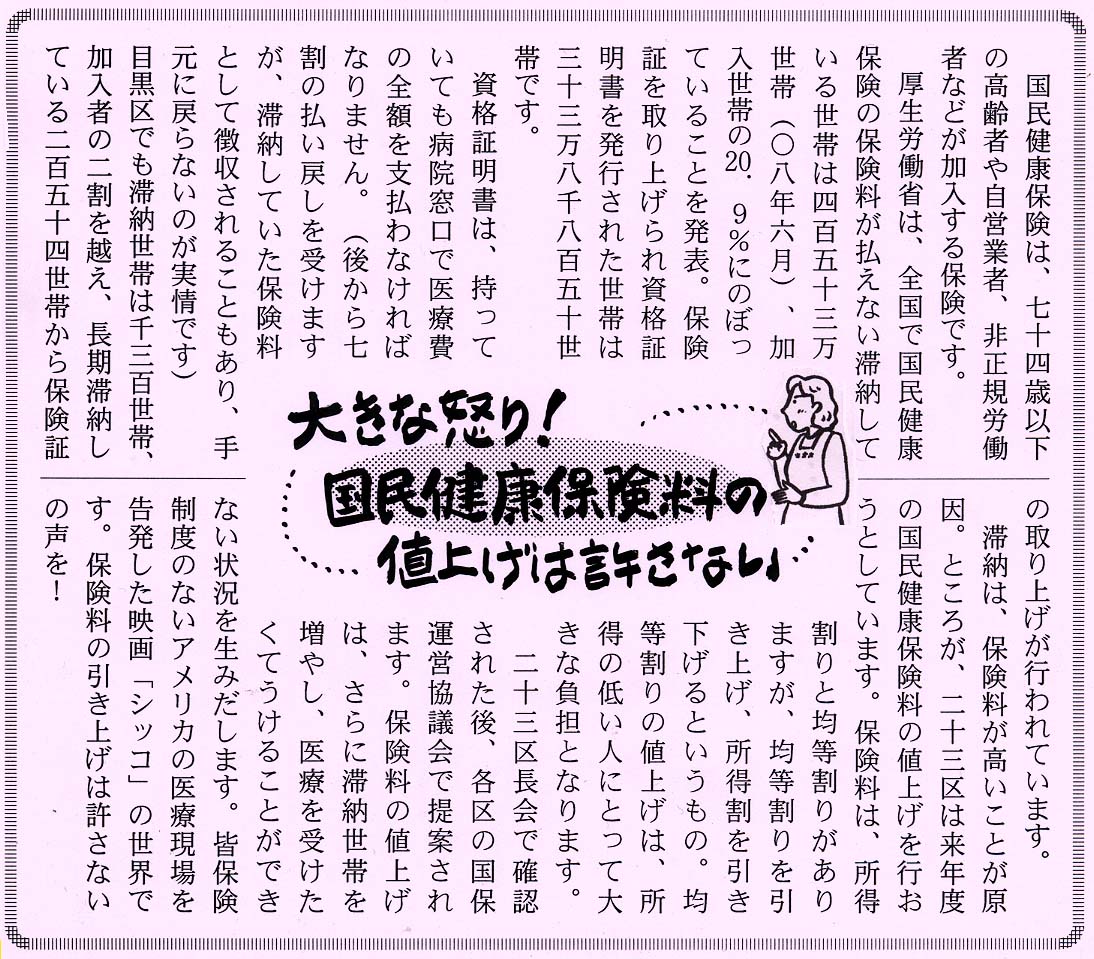 大きな怒り!
国民健康保険料の
値上げは許さない
国民健康保険は、七十四歳以下
の高齢者や自営業者、非正規労働
者などが加入する保険です。
厚生労働省は、全国で国民健康
保険の保険料が払えない滞納して
いる世帯は四百五十三万
世帯(〇八年六月)、加
入世帯の20.9%にのぼっ
ていることを発表。保険
証を取り上げられ資格証
明書を発行された世帯は
三十三万八千八百五十世
帯です。
資格証明書は、持って
いても病院窓口で医療費
の全額を支払わなければ
なりません。(後から七
割の払い戻しを受けます
が、滞納していた保険料
として徴収されることもあり、手
元に戻らないのが実情です)
目黒区でも滞納世帯は千三百世帯、
加入者の二割を越え、長期滞納し
ている二百五十四世帯から保険証
の取り上げが行われています。
滞納は、保険料が高いことが原
因。ところが、二十三区は来年度
の国民健康保険料の値上げを行お
うとしています。保険料は、所得
割りと均等割りがあり
ますが、均等割りを引
き上げ、所得割を引き
下げるというもの。均
等割りの値上げは、所
得の低い人にとって大
きな負担となります。
二十三区長会で確認
された後、各区の国保
運営協議会で提案され
ます。保険料の値上げ
は、さらに滞納世帯を
増やし、医療を受けた
くてうけることができ
ない状況を生みだします。皆保険
制度のないアメリカの医療現場を
告発した映画「シッコ」の世界で
す。保険料の引き上げは許さない
の声を!